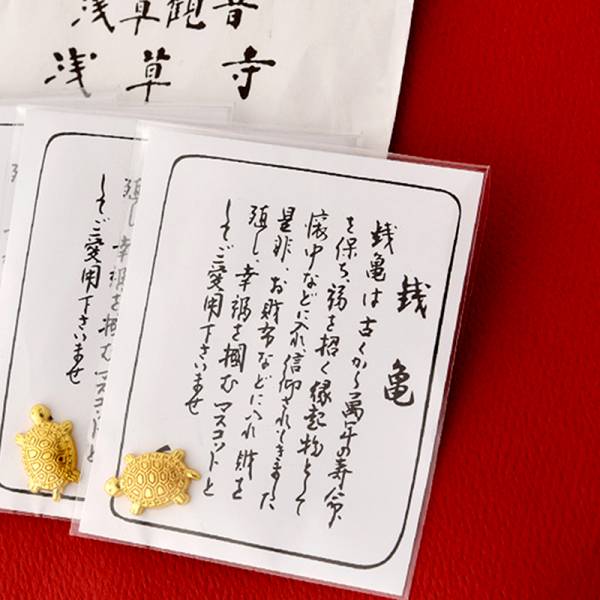 浅草観音
浅草寺
銭亀
銭亀は古くから萬年の寿命
を保ち福を招く縁起物として
懐中などに入れ信仰されてきました
是非、お財布などに入れ財を
殖し、幸福を掴むマスコットと
してご愛用下さいませ
殖し、幸福を掴むマスコットと
してご愛用下さいませ